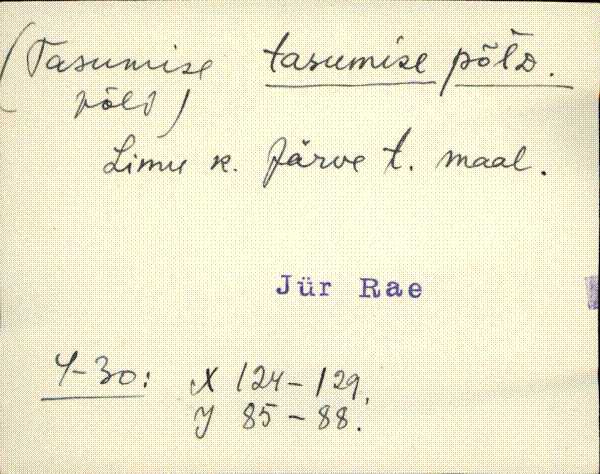 (Tasumise tasumise põld.
põld)
Limu k. Järve t. maal.
Jür Rae
4-30: X 124-129,
Y 85-88.